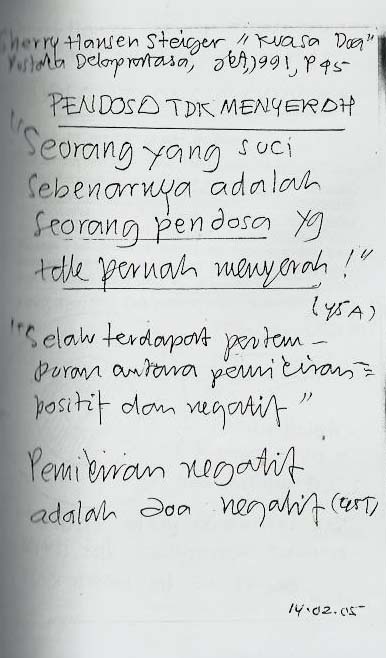 Sherry Hansen Steiger "Kuasa Doa"
Pustaka Delapratasa, Jkt, 1991, P 45
PENDOSA TDK MENYERAH
"Seorang yang suci
sebenarnya adalah
seorang pendosa yg
tdk pernah menyerah!"
(45A)
"Selalu terdapat pertem-
puran antara pemikiran=
positif dan negatif"
Pemikiran negatif
adalah doa negatif (45T)
14.02.05